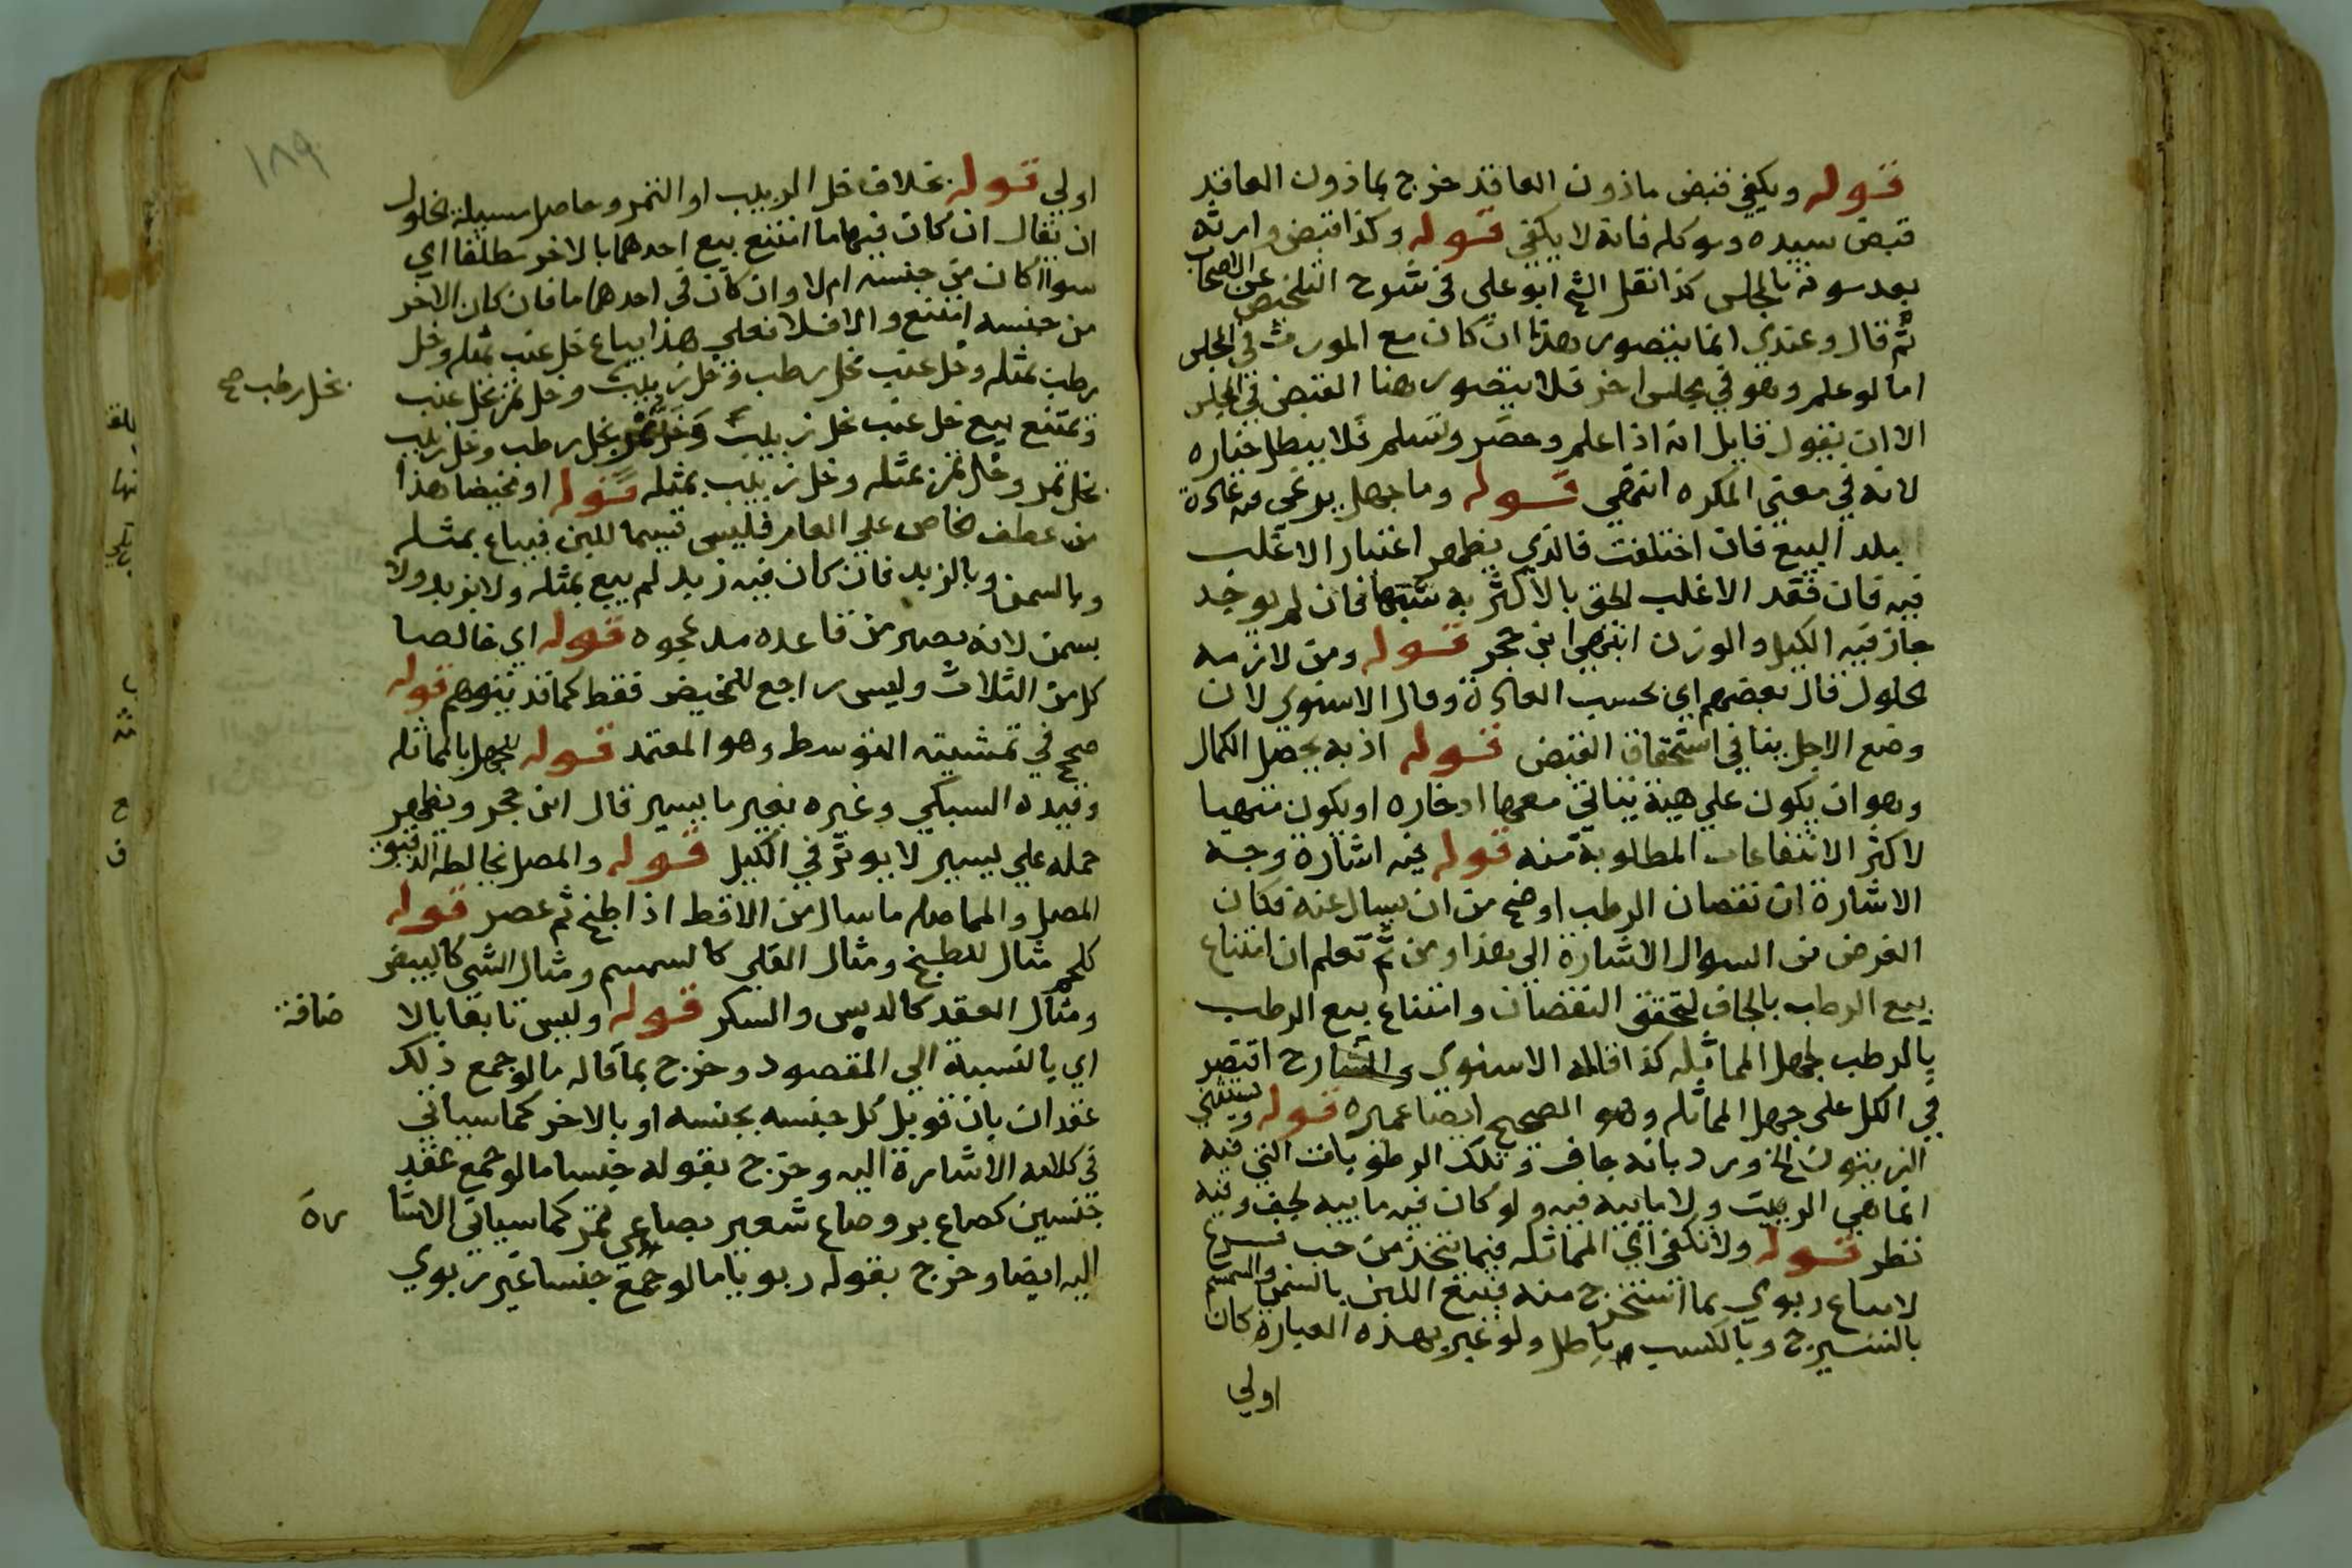 قوله ويكفي قبض ماذون العاقد خرج بماذون العاقد
قبض سيده وموكله فانه لا يكفي قوله وكذا قبض وارثه
بعد موته بالمجلس كذا نقل الشخ ابو علي في شرح التلخيص عن الاصحاب
ثم قال وعندي انما يتصور هذا ان كان مع المورث في المجلس
اما لو علم وهو في مجلس اخر فلا يتصور هنا القبض في المجلس
الا ان يقول قايل انه اذا علم وحضر وتسلم فلا يبطل خياره
لانه في معنى المكره انتهى قوله وما جهل يرعى فيه عادة
بلد البيع فان اختلفت فالذي يظهر اعتبار الاغلب
فيه فان فقد الاغلب الحق بالاكثر به شبها فان لم يوجد
جاز فيه الكيل والوزن انتهى ابن حجر قوله ومن لازمه
الحلول قال بعضهم اي بحسب العادة وقال الاسنوي لان
وضع الاجل ينافي استحقاق القبض قوله اذ به يحصل الكمال
وهو ان يكون على هية يتاتى معها ادخاره او يكون متهيا
لاكثر الانتفاعات المطلوبة منه قوله فيه اشارة وجه
الاشارة ان نقصان الرطب اوضح من ان يسال عنه فكان
الغرض من السوال الاشارة الى هذا ومن ثم تعلم ان امتناع
بيع الرطب بالجاف لتحقق النقصان وامتناع بيع الرطب
بالرطب لجهل المماثله كذا قاله الاسنوي والشارح اقتصر
في الكل على جهل المماثله وهو الصحيح ايضا عميره قوله ويستثني
الزيتون الخ ورد بانه جاف وتلك الرطوبات التي فيه
انما هي الزيت ولا مايية فيه ولو كان فيه مايية لجف وفيه
نظر قوله ولا تكفي اي المماثله فيما يتخذ من حب فرع
لا يباع ربوي بما استخرج منه فبيع اللبن بالسمن والسمسم
بالشيرج وبالكسب باطل ولو عبر بهذه العبارة كان
اولي
١٨٩
اولي قوله بخلاف خل الزبيب او التمر وحاصل مسيلة الخلول
ان يقال ان كان فيهما ما امتنع بيع احدهما بالاخر مطلقا اي
سواا كان من جنسه ام لا وان كان في احدهما ما فان كان الاخر
من جنسه امتنع والا فلا فعلي هذا يباع خل عنب بمثله وخل
رطب بمثله وخل عنب بخل رطب وخل زبيب وخل تمر بخل عنب
بخل رطب صح
ويمتنع بيع خل عنب بخل زبيب وخل تمر بخل رطب وخل زبيب
بخل تمر وخل تمر بمثله وخل زبيب بمثله قوله او مخيضا هذا
من عطف الخاص علي العام فليس قسيما للبن فيباع بمثله
وبالسمن وبالزبد فان كان فيه زبد لم يبع بمثله ولا بزبد ولا
بسمن لانه يصير من قاعده مد عجوه قوله اي خالصا
كل من الثلاث وليس راجع للمخيض فقط كما قد يتوهم قوله
صحح في تمشيته المتوسط وهو المعتمد قوله للجهل بالمماثله
وقيده السبكي وغيره بغير ما يسير قال ابن حجر ويظهر
حمله علي يسير لا يوثر في الكيل قوله والمصل لمخالطه الدقيق
المصل والمماصله ما سال من الاقط اذا طبخ ثم عصر قوله
كلحم مثال للطبخ ومثال القلي كالسمسم ومثال الشي كالبيض
ومثال العقد كالدبس والسكر قوله وليس تابعا بالا
ضافة
اي بالنسبة الي المقصود وخرج بما قاله ما لو جمع ذلك
عقدان بان قوبل كل جنسه بجنسه او بالاخر كما سياتي
في كلامه الاشارة اليه وخرج بقوله جنسا ما لو جمع عقد
جنسين كصاع بر وصاع شعير بصاعي تمر كما سياتي الاشا
رة
اليه ايضا وخرج بقوله ربويا ما لو جمع جنسا غير ربوي